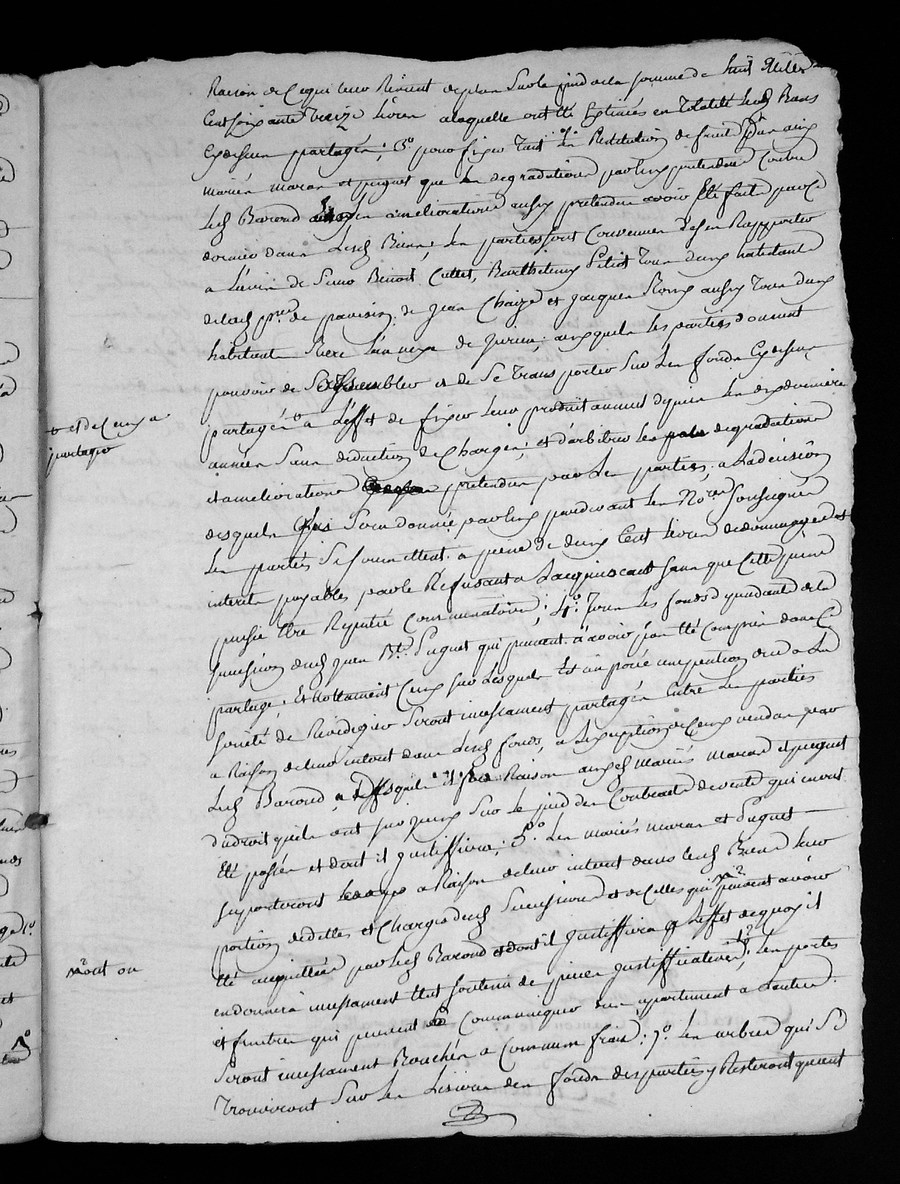 Raison de Ce qui leur Revient de plus sur le pied de la somme de huit Mille
Cent soixante treize livres a laquelle ont été Estimés en totalité lesd Biens
Cy dessus partagés; 3.° pour fixer tant la Restitution de fruits due aux
mariés maras et puguet que les degradations par eux pretendue Contre
led Barond en ameliorations aussy pretendue avoir été faite par Ce
dernier dans lesd Biens, les parties sont Convenues de s'en Rapporter
a l'avis de Sieurs Benoit Cullet, Barthelemy Pitiot tous deux habitants
de lad p.sse de pavisin, de Jean Chaize et Jacques Roux aussy tous deux
habitant Rive de; auxquels les parties donnent
pouvoir de S'assembler et de Se transporter Sur les fonds Cy dessus
partagés + a l'effet de fixer leur produit annuel depuis les dix dernieres
années sans deduction de Charges; et d'arbitrer les degradations
et ameliorations pretendues par les parties, a la decision
desquels qui sera donnée par eux pardevant les No.res soussignés
les parties se soumettent a peine de deux Cent livres de dommages et
interets payables par le Refusant a l'acquiescant sans que Cette peine
puisse être Reputée Comminatoire; 4.° Tous les fonds dependants de la
succession dud Puguet qui peuvent n'avoir pas été Compris dans Ce
partage, Et nottamment Ceux sur lesquels Est imposée une pension due a la
société de Rivedegier Seront incessament partagés Entre les parties
a Raison de leur interet dans lesd fonds, a l'exception de Ceux vendus par
led Barond, Raison auxd mariés maras et puguet
du droit qu'ils ont sur iceux Sur le pied des Contracts de vente qui en ont
Eté passés et dont il justiffiera; 5.° Les mariés maras et Puguet
supporteront a Raison de leur interet dans lesd Biens leur
portion des dettes et Charges desd Successions et de Celles qui peuvent avoir
été acquittées par led Barond et dont il justiffiera a l'effet de quoy il
en donnera incessament Etat soutenu de pieces justifficatives; 6.° Les portes
et fenêtres qui peuvent Communiquer d'un apartement a l'autre
Seront incessament Bouchées a Commun frais; 7.° Les arbres qui Se
trouveront Sur les Lisieres des fonds des parties y Resteront quant
+ et de Ceux a
partager
n'ont ou